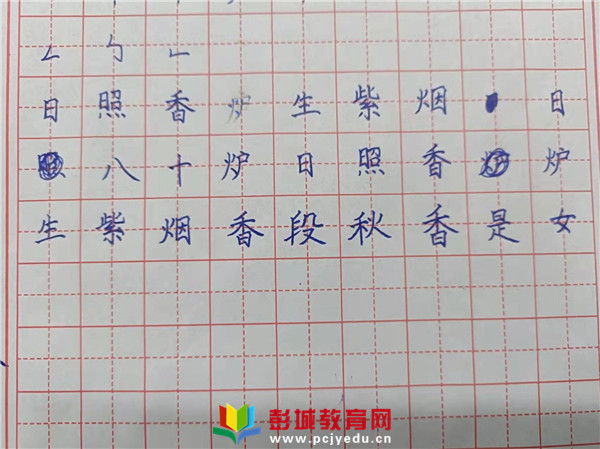 日照香炉生紫烟日
八十炉日照香炉
生紫烟香段秋香是女
彭城教育网
www.pcjyedu.cn